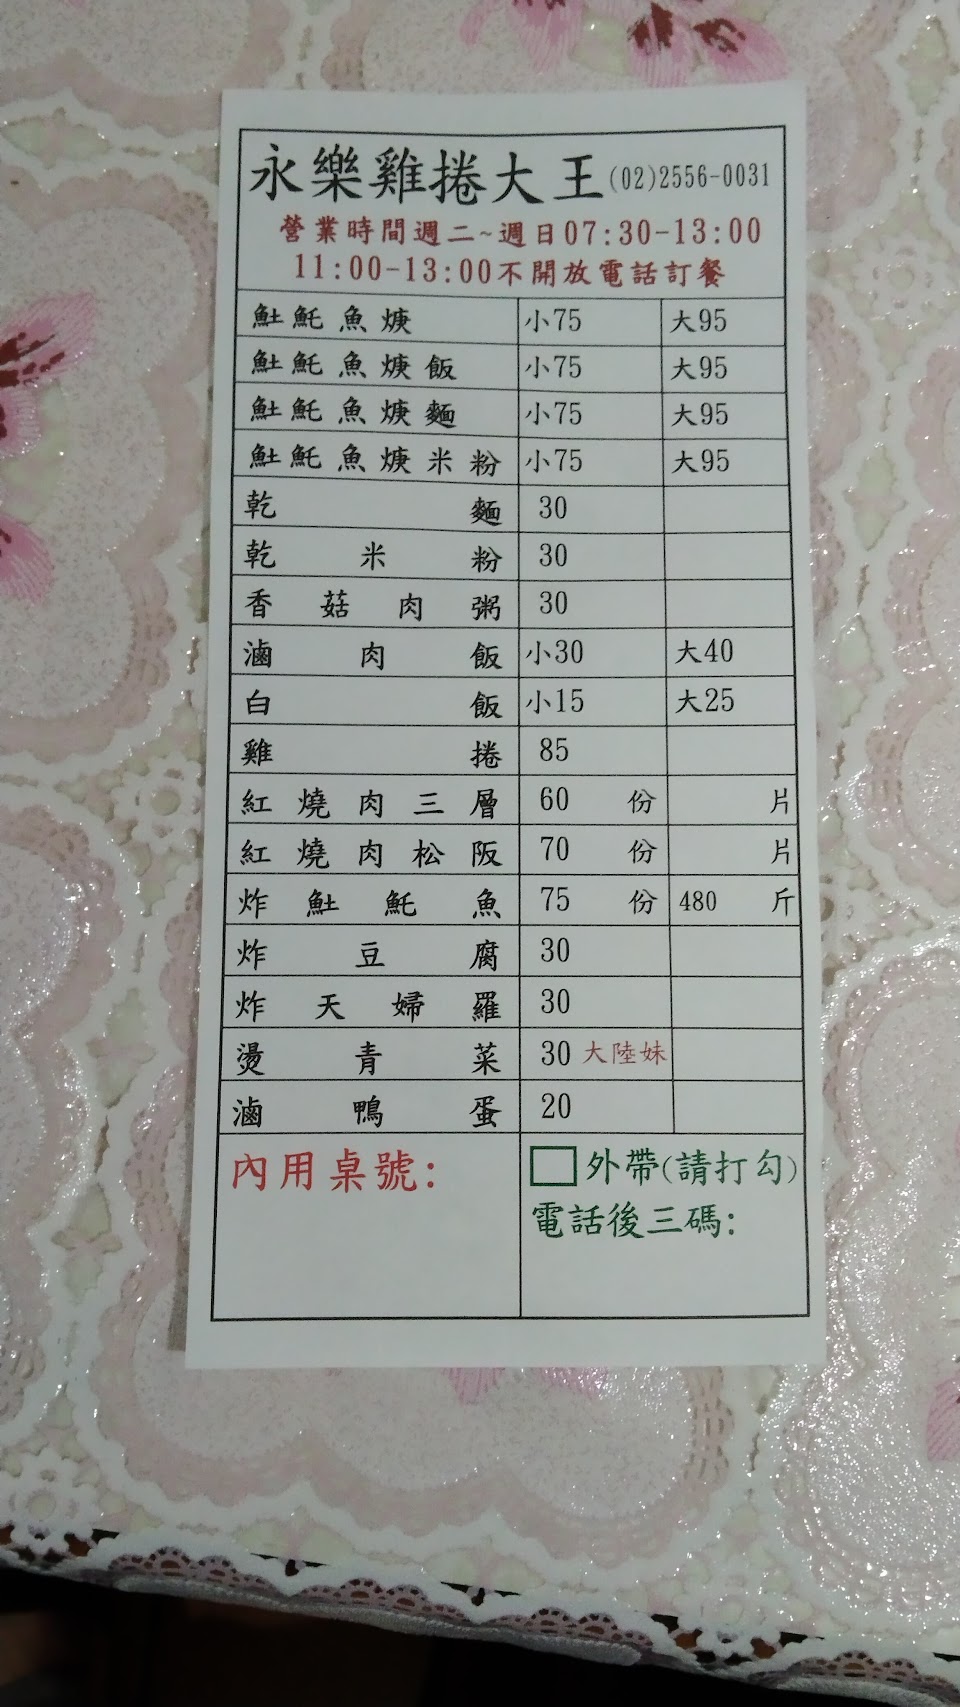 永樂雞捲大王(02)2556-0031
營業時間週二~週日07:30-13:00
11:00-13:00不開放電話訂餐
𩵚魠魚焿 小75 大95
𩵚魠魚焿飯 小75 大95
𩵚魠魚焿麵 小75 大95
𩵚魠魚焿米粉 小75 大95
乾麵 30
乾米粉 30
香菇肉粥 30
滷肉飯 小30 大40
白飯 小15 大25
雞捲 85
紅燒肉三層 60 份 片
紅燒肉松阪 70 份 片
炸𩵚魠魚 75 份 480 斤
炸豆腐 30
炸天婦羅 30
燙青菜 30 大陸妹
滷鴨蛋 20
內用桌號:
□外帶(請打勾)
電話後三碼: